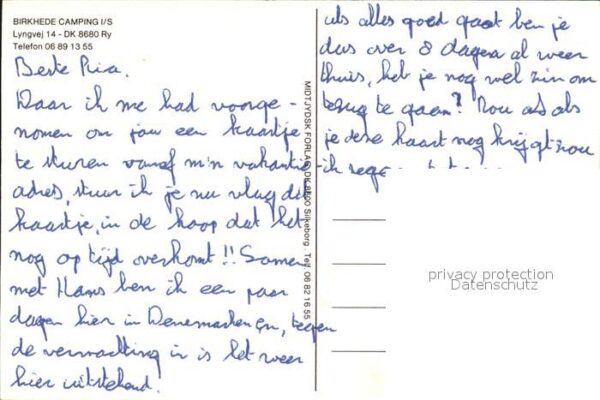 BIRKHEDE CAMPING I/S
Lyngvej 14 - DK 8680 Ry
Telefon 06 89 13 55
Beste Ria.
Daar ik me had voorge-
nomen om jou een kaartje
te sturen vanaf m'n vakantie
adres, stuur ik je nu vlug dit
kaartje, in de hoop dat het
nog op tijd overkomt!! Samen
met Hans ben ik een paar
dagen hier in Denemarken en, tegen
de verwachting in is het weer
hier uitstekend.
MIDTJYDSK FORLAG DK 8600 Silkeborg. Telf. 06 82 16 55
als alles goed gaat ben je
dus over 8 dagen al weer
thuis, heb je nog wel zin om
terug te gaan? Nou als als
je deze kaart nog krijgt zou
ik
privacy protection
Datenschutz